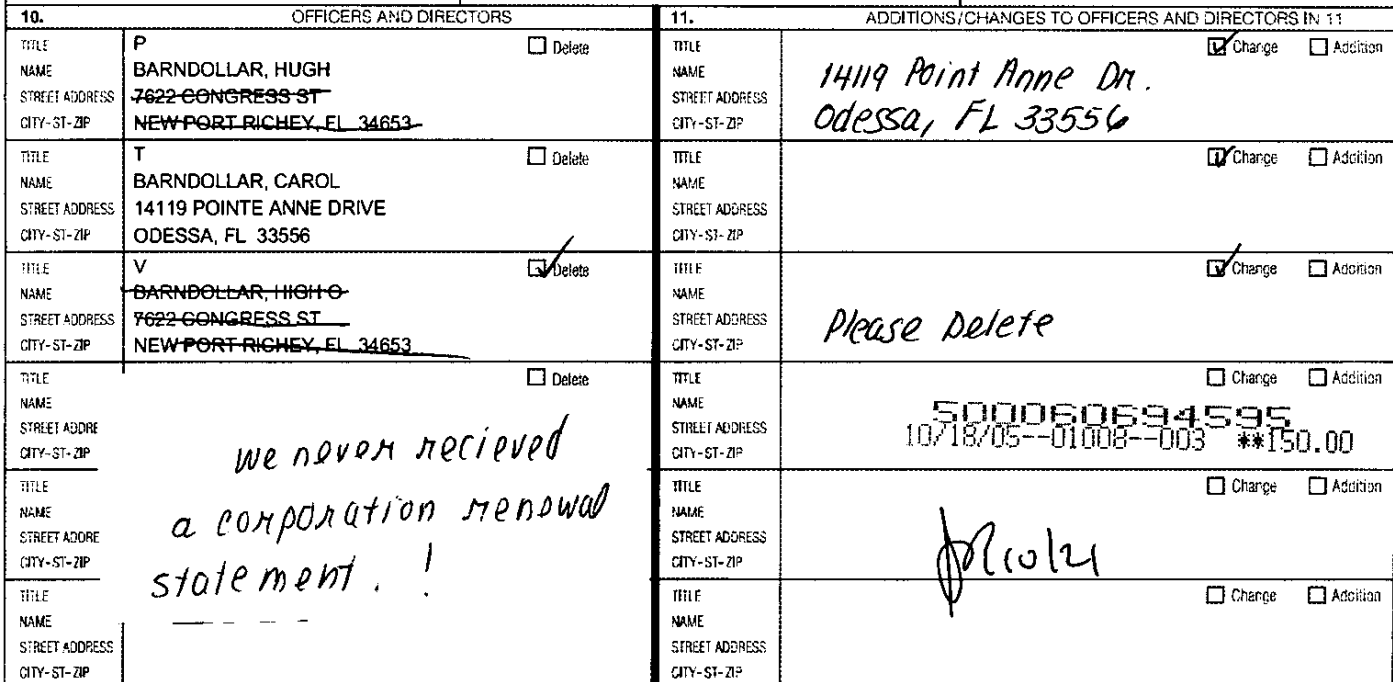 10. OFFICERS AND DIRECTORS
TITLE P Delete
NAME BARNDOLLAR, HUGH
STREET ADDRESS 7622 CONGRESS ST
CITY-ST-ZIP NEW PORT RICHEY, FL 34653
TITLE T Delete
NAME BARNDOLLAR, CAROL
STREET ADDRESS 14119 POINTE ANNE DRIVE
CITY-ST-ZIP ODESSA, FL 33556
TITLE V Delete
NAME BARNDOLLAR, HIGH O
STREET ADDRESS 7622 CONGRESS ST
CITY-ST-ZIP NEW PORT RICHEY, FL 34653
TITLE Delete
NAME
STREET ADDRE
CITY-ST-ZIP
we never recieved
TITLE
NAME
a corporation renewal
STREET ADDRE
CITY-ST-ZIP
statement. !
TITLE
NAME
STREET ADDRESS
CITY-ST-ZIP
11. ADDITIONS/CHANGES TO OFFICERS AND DIRECTORS IN 11
TITLE Change Addition
NAME 14119 Point Anne Dr.
STREET ADDRESS
CITY-ST-ZIP Odessa, FL 33556
TITLE Change Addition
NAME
STREET ADDRESS
CITY-ST-ZIP
TITLE Change Addition
NAME
STREET ADDRESS Please Delete
CITY-ST-ZIP
TITLE Change Addition
NAME 500060694595
STREET ADDRESS 10/18/05--01008--003 **150.00
CITY-ST-ZIP
TITLE Change Addition
NAME
STREET ADDRESS
CITY-ST-ZIP
TITLE Change Addition
NAME
STREET ADDRESS
CITY-ST-ZIP